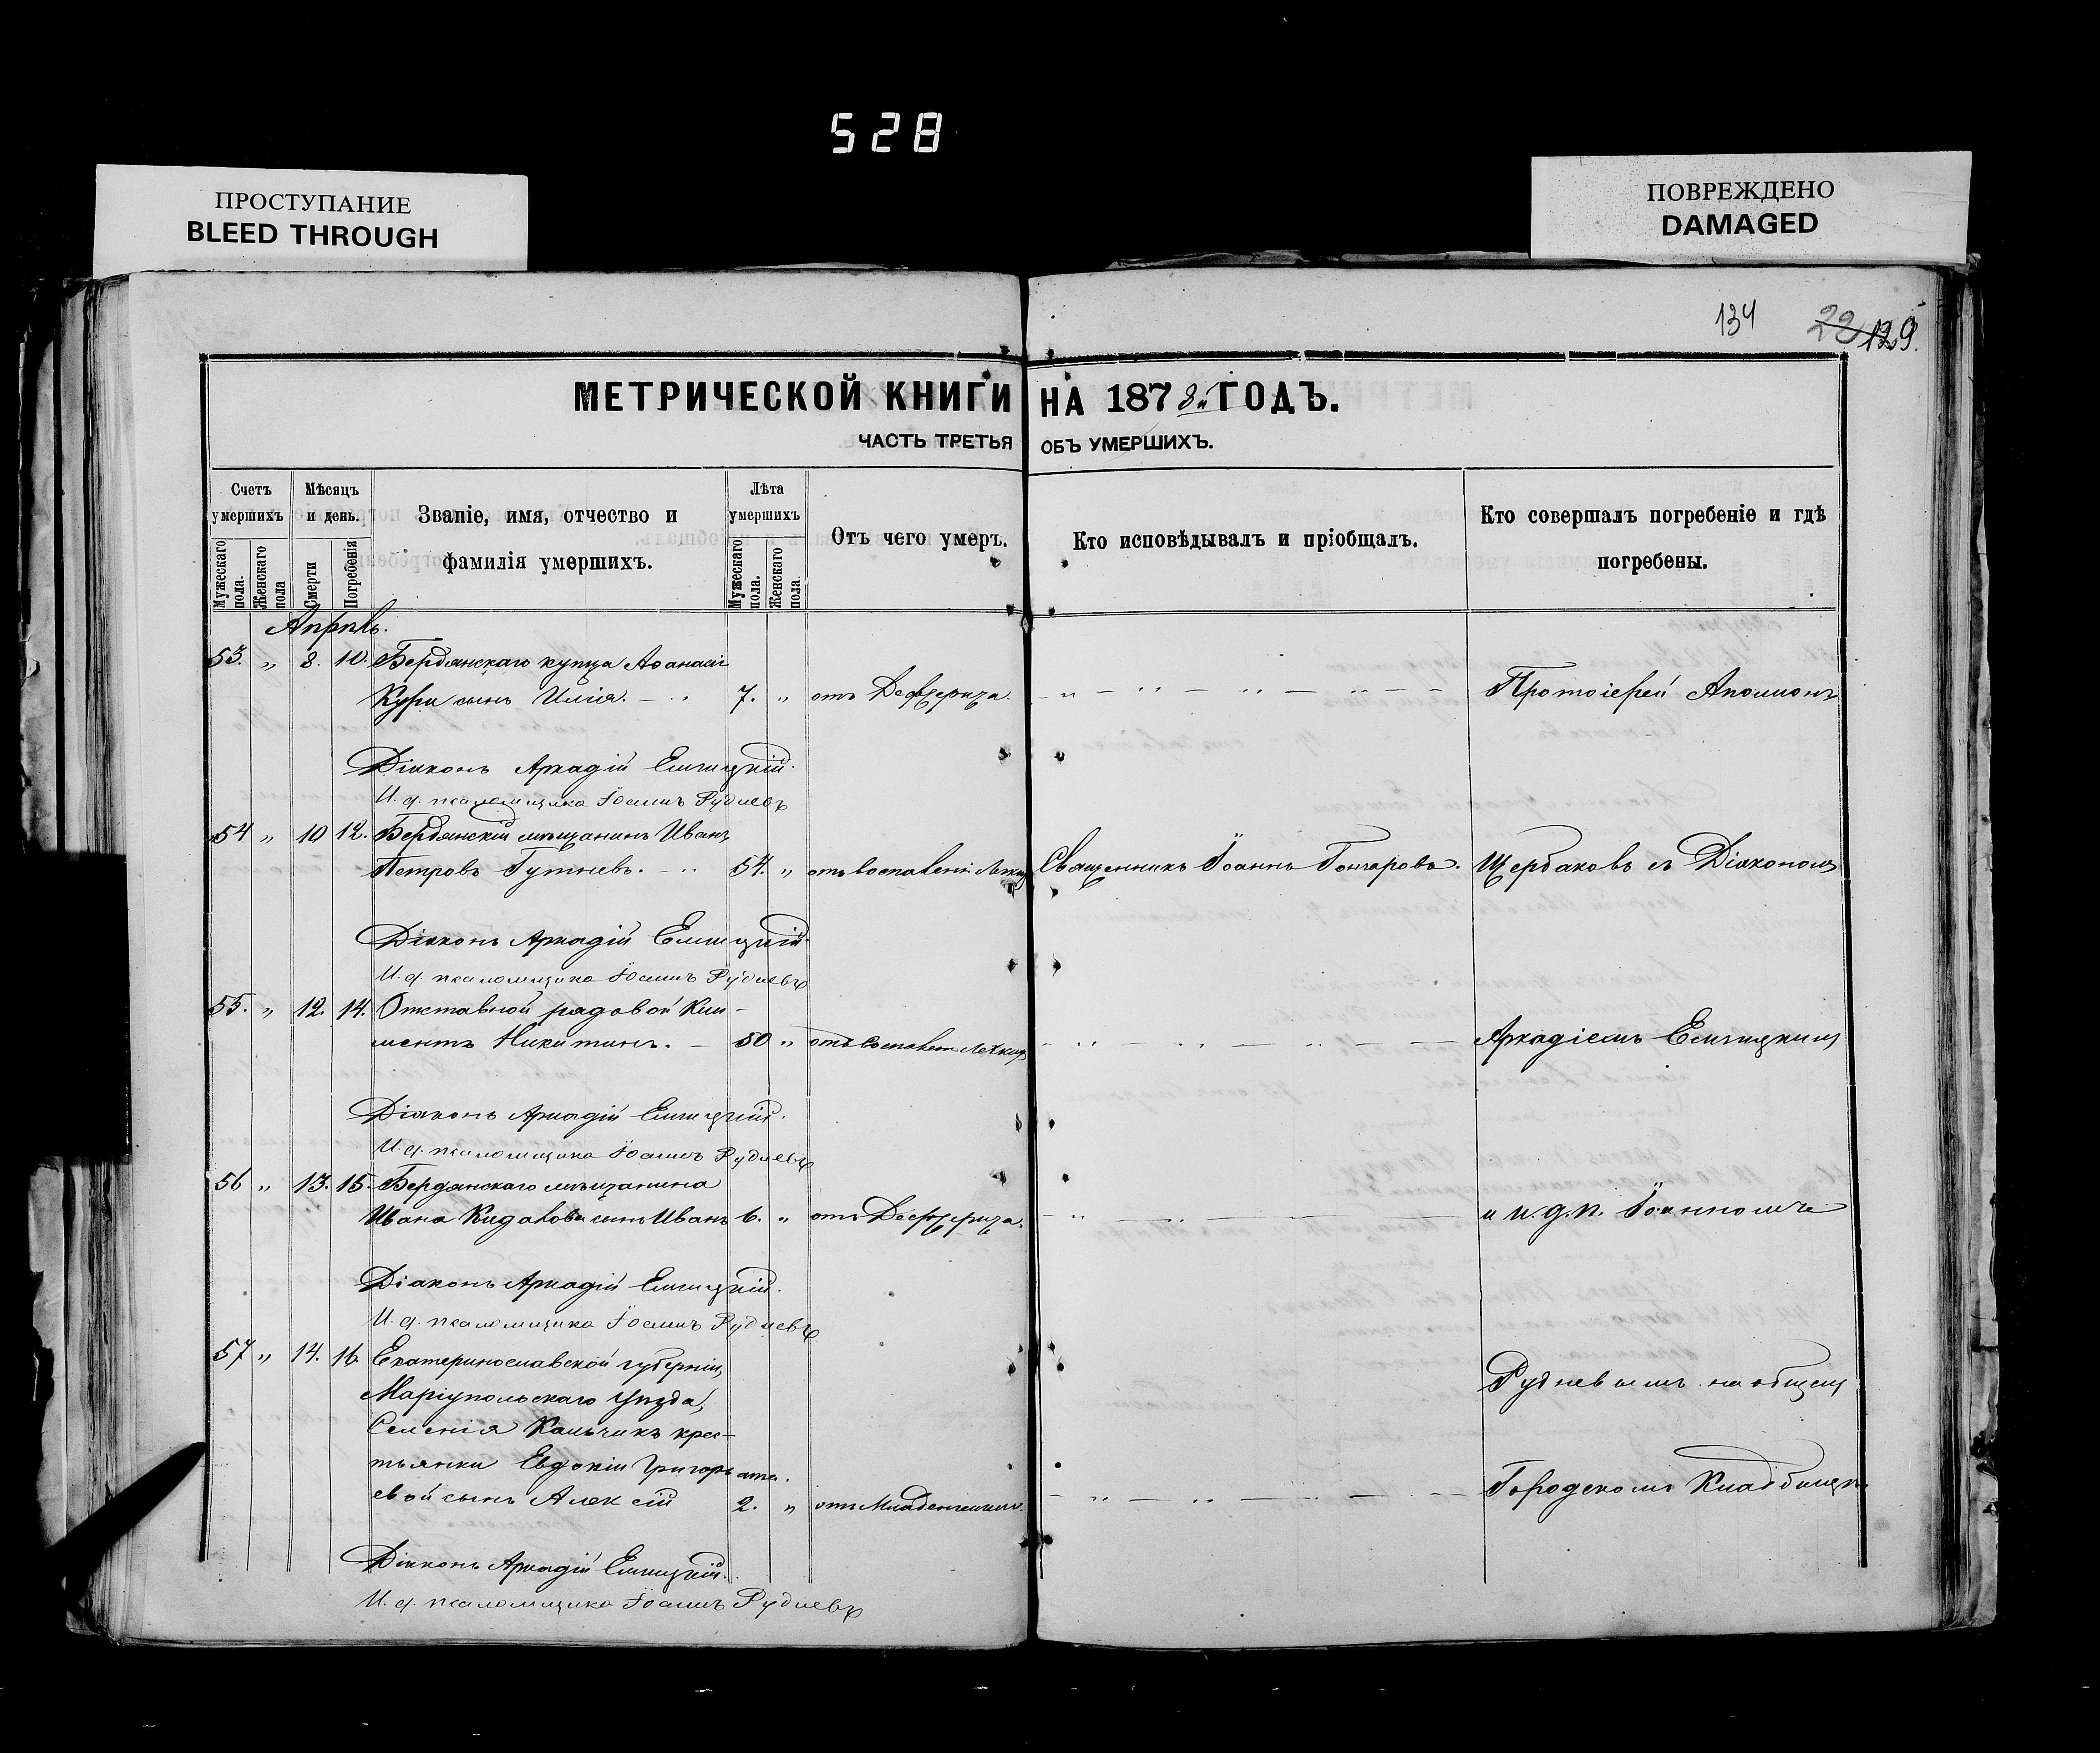 528
ПРОСТУПАНИЕ
BLEED THROUGH
ПОВРЕЖДЕНО
DAMAGED
134
29 129.
МЕТРИЧЕСКОЙ КНИГИ НА 1878й ГОДЪ.
ЧАСТЬ ТРЕТЬЯ ОБЪ УМЕРШИХЪ.
Счетъ умершихъ
Мужескаго пола.
Женскаго пола
Мѣсяцъ и день.
Смерти
Погребенія
Званіе, имя, отчество и
фамилія умершихъ.
Лѣта умершихъ
Мужескаго пола.
Женскаго пола.
Отъ чего умеръ.
Кто исповѣдывалъ и пріобщалъ.
Кто совершалъ погребеніе и гдѣ
погребены.
Апрѣль.
53. „ 8. 10. Бердянскаго купца Аѳанасія
Кури сынъ Илія. 7. „ отъ Дифтерита. Протоіерей Аполлонъ
Діаконъ Аркадій Емицкій.
И. д. псаломщика Іоаннъ Рудневъ
54 „ 10 12. Бердянскій мѣщанинъ Иванъ
Петровъ Гутневъ. 54. „ отъ воспаленія Легких Священникъ Іоаннъ Гончаровъ. Щербаковъ съ Діакономъ
Діаконъ Аркадій Емицкій
И. д. псаломщика Іоаннъ Рудневъ
55. „ 12. 14. Отставной рядовой Кли-
ментъ Никитинъ. 50 „ отъ воспален Легких Аркадіемъ Емицкимъ
Діаконъ Аркадій Емицкій.
И. д. псаломщика Іоаннъ Рудневъ
56 „ 13. 15. Бердянскаго мѣщанина
Ивана Кидалова сынъ Иванъ 6. „ отъ Дифтерита. и и. д. п. Іоанномъ
Діаконъ Аркадій Емицкій.
И. д. псаломщика Іоаннъ Рудневъ
57 „ 14. 16. Екатеринославской губерніи,
Маріупольскаго Уѣзда, Рудневымъ на общем
Селенія Кальчикъ крес-
тьянки Евдокіи Григорь
евой сынъ Алексій 2. „ отъ Младенческаго. Городскомъ Кладбищѣ
Діаконъ Аркадій Емицкій.
И. д. псаломщика Іоаннъ Рудневъ